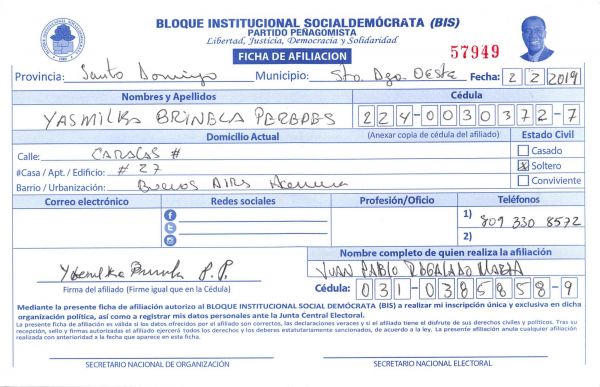 BLOQUE INSTITUCIONAL SOCIALDEMÓCRATA (BIS)
PARTIDO PEÑAGOMISTA
Libertad, Justicia, Democracia y Solidaridad
FICHA DE AFILIACION
57949
Provincia: Santo Domingo Municipio: Sto. Dgo. OESTE Fecha: 2 2 2019
Nombres y Apellidos Cédula
YASMILKA BRINELA PEREPES 224-0030372-7
Domicilio Actual (Anexar copia de cédula del afiliado) Estado Civil
Calle: CARACAS # Casado
#Casa / Apt. / Edificio: # 27 Soltero
Barrio / Urbanización: Buenos AIRS Conviviente
Correo electrónico Redes sociales Profesión/Oficio Teléfonos
1) 809 330 8572
2)
Nombre completo de quien realiza la afiliación
Yasmilka P. P. JUAN PABLO ROGALADO
Firma del afiliado (Firme igual que en la Cédula) Cédula: 031-0385858-9
Mediante la presente ficha de afiliación autorizo al BLOQUE INSTITUCIONAL SOCIAL DEMÓCRATA (BIS) a realizar mi inscripción única y exclusiva en dicha
organización política, así como a registrar mis datos personales ante la Junta Central Electoral.
La presente ficha de afiliación es válida si los datos ofrecidos por el afiliado son correctos, las declaraciones veraces y si el afiliado tiene el disfrute de sus derechos civiles y políticos. Tras su
recepción, sello y firmas autorizadas el afiliado ejercerá todos los derechos y los deberes estatutariamente sancionados, de acuerdo a la ley. La presente afiliación anula cualquier afiliación
realizada con anterioridad a la fecha que aparece en esta ficha.
SECRETARIO NACIONAL DE ORGANIZACIÓN SECRETARIO NACIONAL ELECTORAL